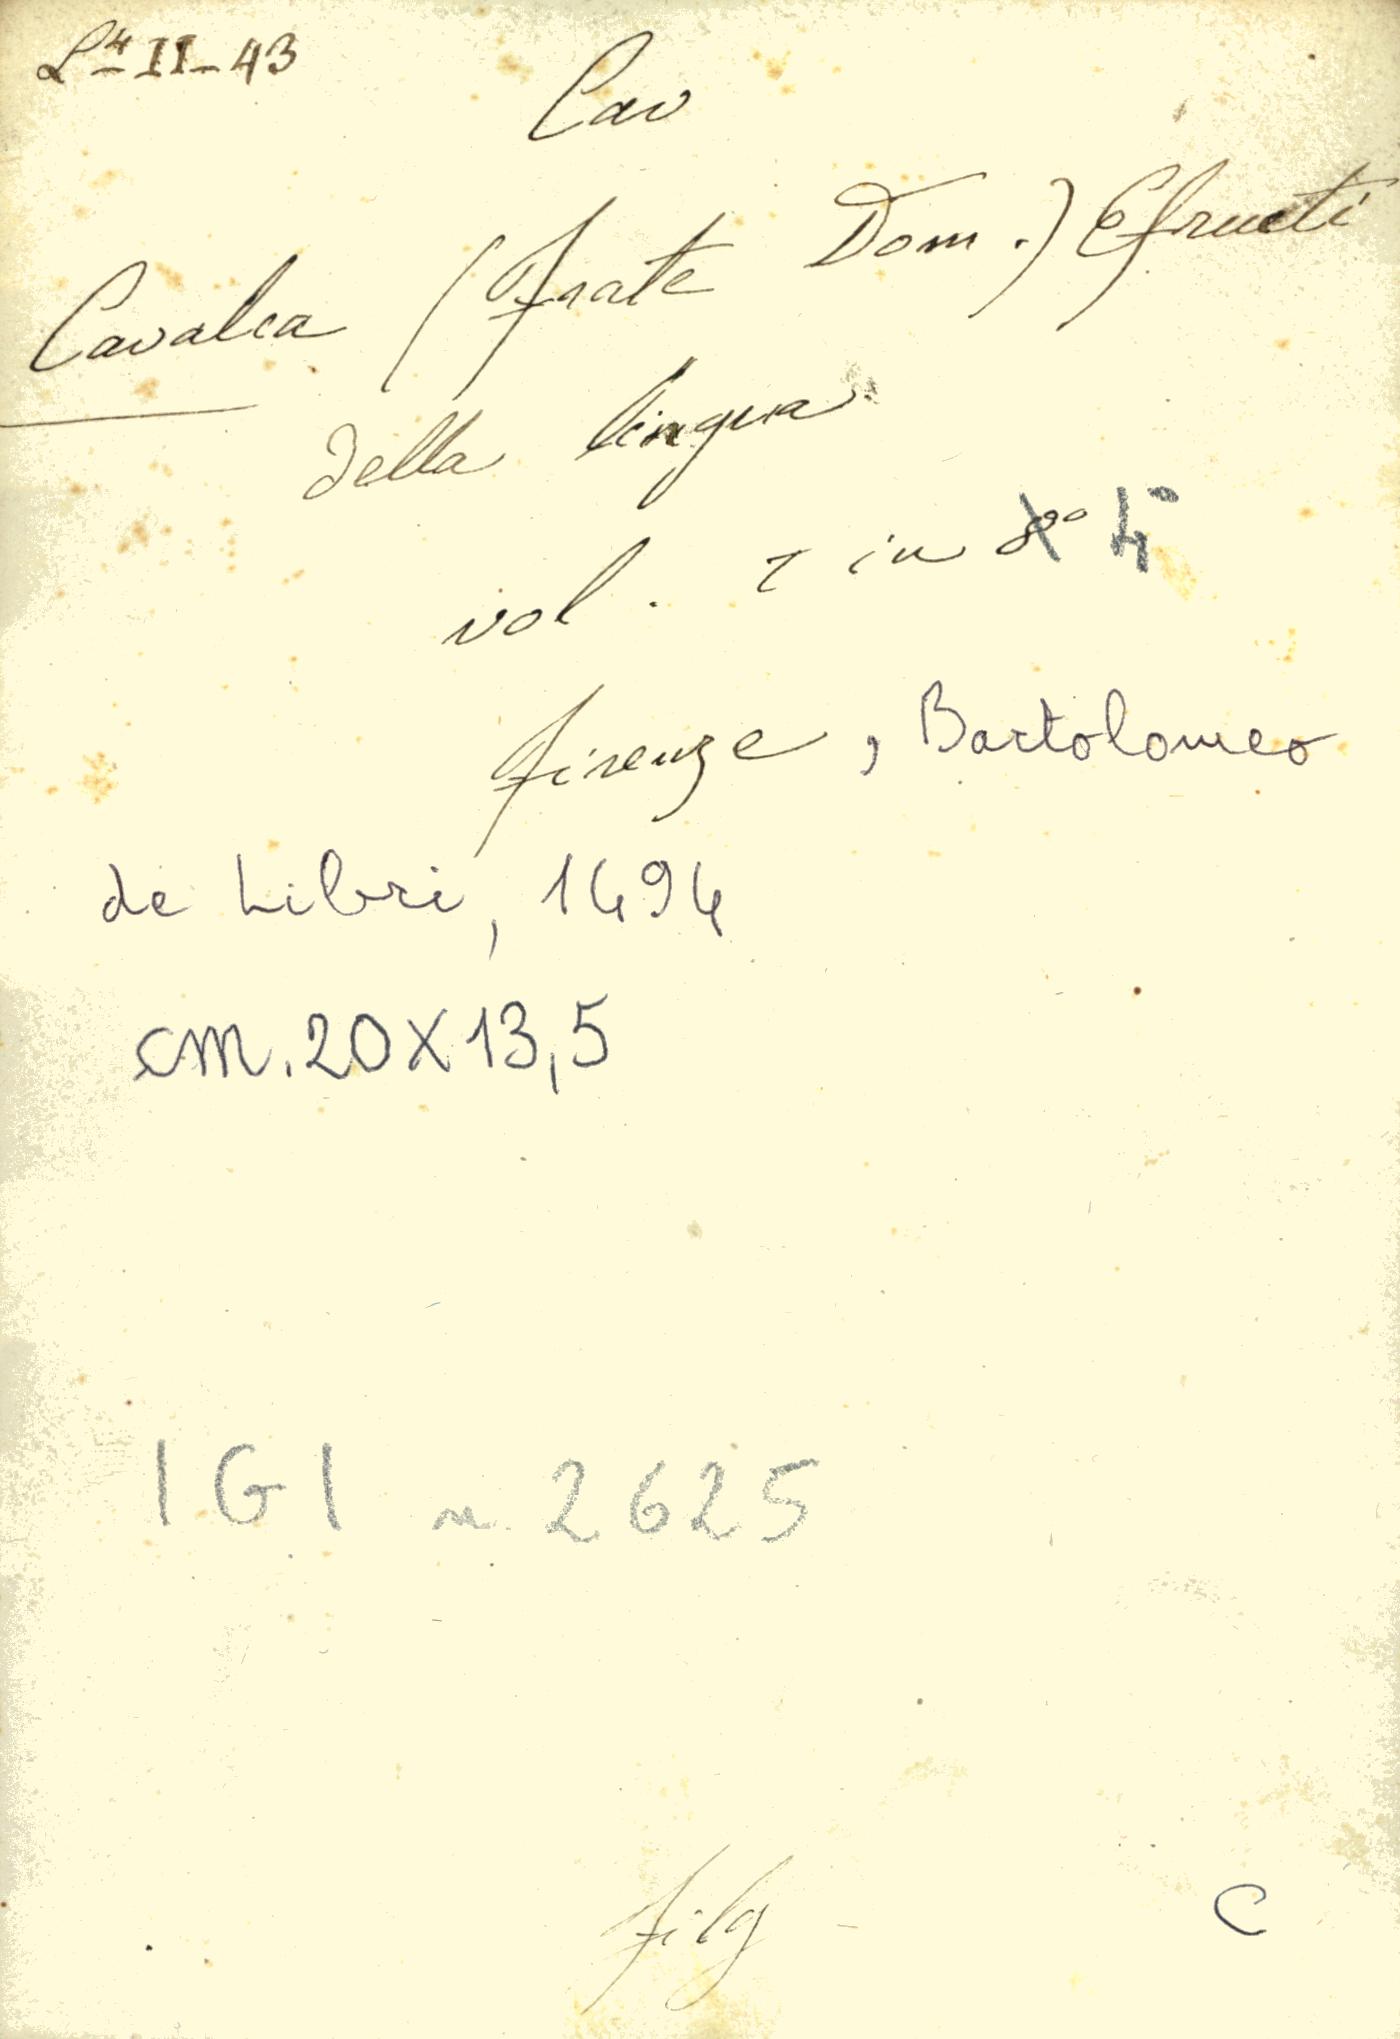 L⁴-II-43
Cav
Cavalca (frate Dom.) E fructi
della lingua
vol. 1 in 8° 4°
firenze, Bartolomeo
de Libri, 1494
cm. 20x13,5
IGI n. 2625
filg
C